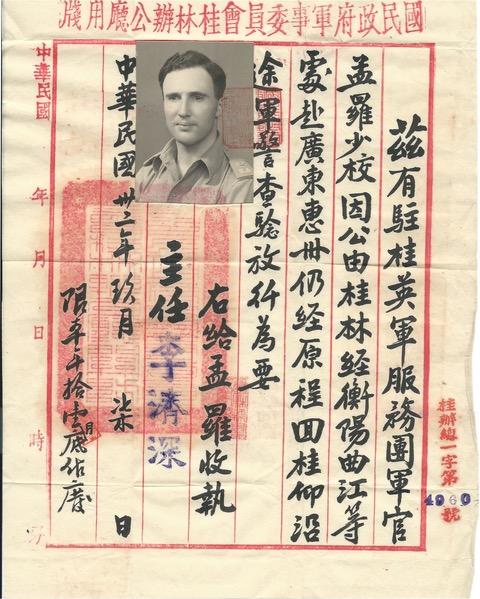 國民政府軍事委員會桂林辦公廳用牋
茲有駐桂英軍服務團軍官
孟羅少校因公由桂林經衡陽曲江等
處赴廣東惠州仍經原程回桂仰沿
途軍警查驗放行為要
右給孟羅收執
主任李濟深
中華民國卅二年玖月 日
限本年拾月底作廢
中華民國 年 月 日 時
桂辦總一字第
4960
號